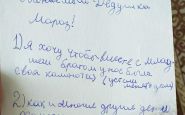 Дедушка
Мороз!
1) Я хочу чтобы вместе с млад-
шим братом у нас была
своя комната (устали
2) как и многие другие дети